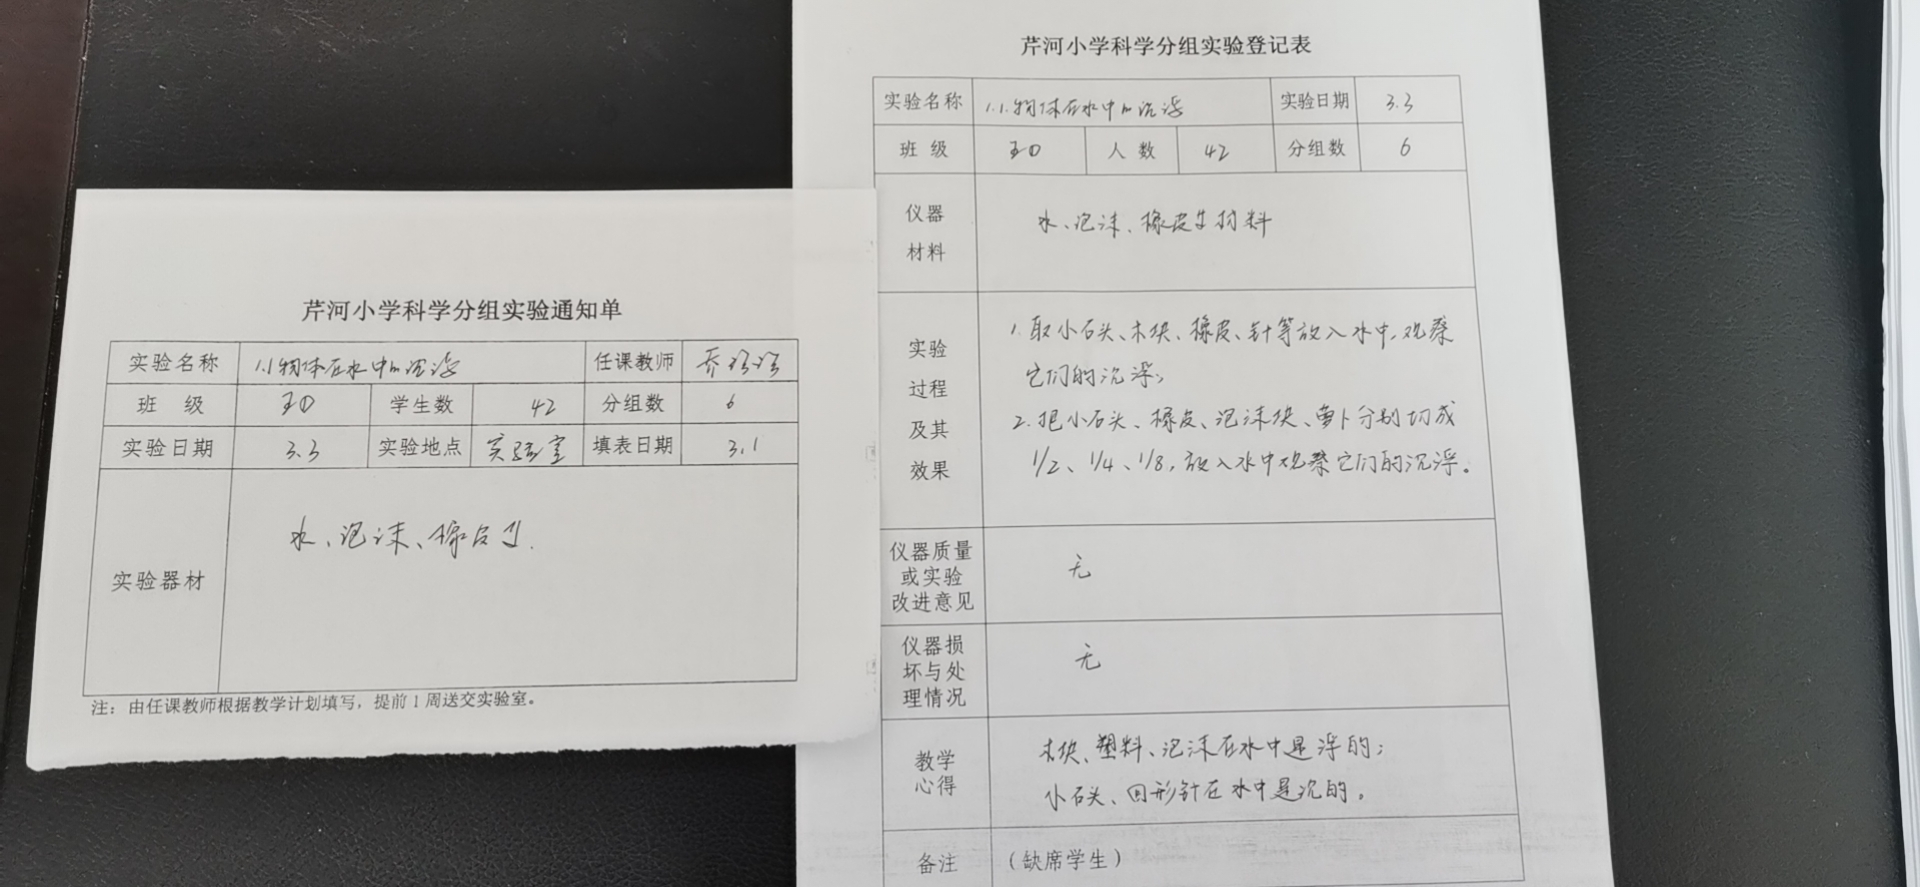 芹河小学科学分组实验通知单
实验名称 1.1物体在水中的沉浮 任课教师
班 级 学生数 42 分组数 6
实验日期 3.3 实验地点 实验室 填表日期 3.1
实验器材 水、泡沫、橡皮
注：由任课教师根据教学计划填写，提前1周送交实验室。
芹河小学科学分组实验登记表
实验名称 1.1.物体在水中的沉浮 实验日期 3.3
班 级 人 数 42 分组数 6
仪器材料 水、泡沫、橡皮等材料
实验过程及其效果
1.取小石头、木块、橡皮、针等放入水中,观察
它们的沉浮;
2.把小石头、橡皮、泡沫块、萝卜分别切成
1/2、1/4、1/8,放入水中观察它们的沉浮。
仪器质量或实验改进意见 无
仪器损坏与处理情况 无
教学心得
木块、塑料、泡沫在水中是浮的;
小石头、回形针在水中是沉的。
备注 (缺席学生)